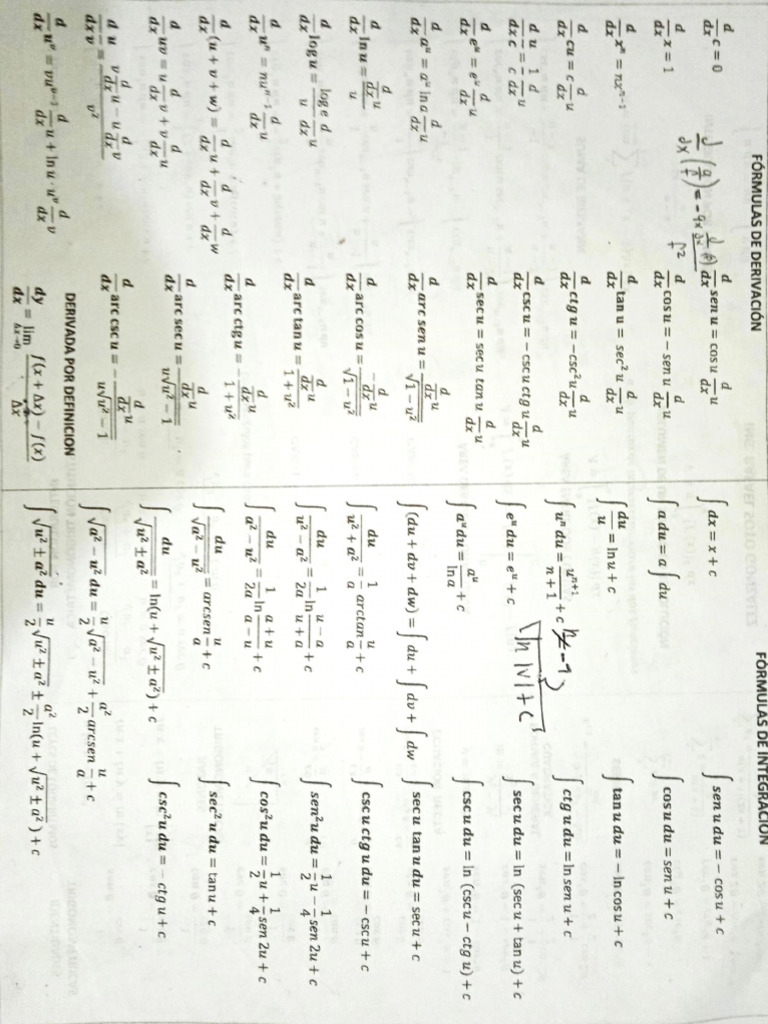 FÓRMULAS DE DERIVACIÓN
d/dx c = 0
d/dx x = 1
d/dx xⁿ = nxⁿ⁻¹
d/dx cu = c d/dx u
d/dx u/c = 1/c d/dx u
d/dx eᵘ = eᵘ d/dx u
d/dx aᵘ = aᵘ ln a d/dx u
d/dx ln u = (d/dx u)/u
d/dx log u = (log e)/u d/dx u
d/dx uⁿ = nuⁿ⁻¹ d/dx u
d/dx (u + v + w) = d/dx u + d/dx v + d/dx w
d/dx uv = u d/dx v + v d/dx u
d/dx u/v = (v d/dx u − u d/dx v)/v²
d/dx uᵛ = vuᵛ⁻¹ d/dx u + ln u · uᵛ d/dx v
d/dx sen u = cos u d/dx u
d/dx cos u = − sen u d/dx u
d/dx tan u = sec² u d/dx u
d/dx ctg u = −csc² u d/dx u
d/dx csc u = − csc u ctg u d/dx u
d/dx sec u = sec u tan u d/dx u
d/dx arc sen u = (d/dx u)/√(1 − u²)
d/dx arc cos u = (− d/dx u)/√(1 − u²)
d/dx arc tan u = (d/dx u)/(1 + u²)
d/dx arc ctg u = − (d/dx u)/(1 + u²)
d/dx arc sec u = (d/dx u)/(u√(u² − 1))
d/dx arc csc u = − (d/dx u)/(u√(u² − 1))
DERIVADA POR DEFINICION
dy/dx = lim Δx→0 (f(x + Δx) − f(x))/Δx
FÓRMULAS DE INTEGRACIÓN
∫ dx = x + c
∫ a du = a ∫ du
∫ du/u = ln u + c
∫ uⁿ du = uⁿ⁺¹/(n + 1) + c n ≠ −1
ln |v| + c
∫ eᵘ du = eᵘ + c
∫ aᵘ du = aᵘ/ln a + c
∫ (du + dv + dw) = ∫ du + ∫ dv + ∫ dw
∫ du/(u² + a²) = 1/a arctan u/a + c
∫ du/(u² − a²) = 1/2a ln (u − a)/(u + a) + c
∫ du/(a² − u²) = 1/2a ln (a + u)/(a − u) + c
∫ du/√(a² − u²) = arcsen u/a + c
∫ du/√(u² ± a²) = ln(u + √(u² ± a²) + c
∫ √(a² − u²) du = u/2 √(a² − u²) + a²/2 arcsen u/a + c
∫ √(u² ± a²) du = u/2 √(u² ± a²) ± a²/2 ln(u + √(u² ± a²) + c
∫ sen u du = − cos u + c
∫ cos u du = sen u + c
∫ tan u du = − ln cos u + c
∫ ctg u du = ln sen u + c
∫ sec u du = ln (sec u + tan u) + c
∫ csc u du = ln (csc u − ctg u) + c
∫ sec u tan u du = sec u + c
∫ csc u ctg u du = − csc u + c
∫ sen² u du = 1/2 u − 1/4 sen 2u + c
∫ cos² u du = 1/2 u + 1/4 sen 2u + c
∫ sec² u du = tan u + c
∫ csc² u du = − ctg u + c